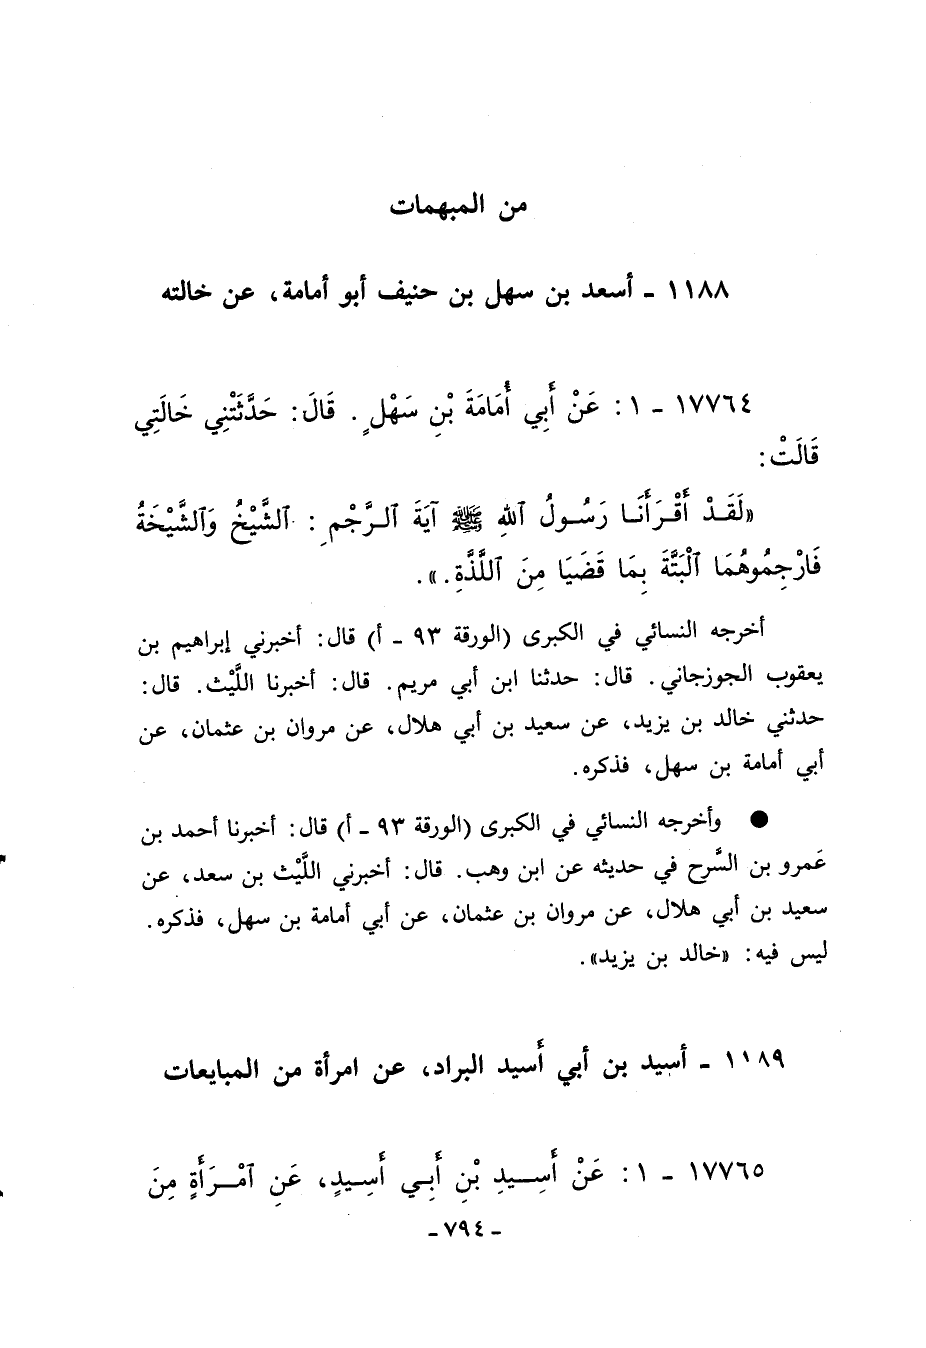 من المبهمات
١١٨٨ - أسعد بن سهل بن حنيف أبو أمامة، عن خالته
١٧٧٦٤ - ١ : عَنْ أَبِي أُمَامَةَ بْنِ سَهْلٍ . قَالَ : حَدَّثَتْنِي خَالَتِي
قَالَتْ :
«لَقَدْ أَقْرَأَنَا رَسُولُ ٱللهِ ﷺ آيَةَ ٱلرَّجْمِ : ٱلشَّيْخُ وَٱلشَّيْخَةُ
فَارْجِمُوهُمَا ٱلْبَتَّةَ بِمَا قَضَيَا مِنَ ٱللَّذَّةِ . » .
أخرجه النسائي في الكبرى (الورقة ٩٣ - أ) قال : أخبرني إبراهيم بن
يعقوب الجوزجاني . قال : حدثنا ابن أبي مريم . قال : أخبرنا اللَّيْث . قال :
حدثني خالد بن يزيد، عن سعيد بن أبي هلال، عن مروان بن عثمان، عن
أبي أمامة بن سهل، فذكره .
● وأخرجه النسائي في الكبرى (الورقة ٩٣ - أ) قال : أخبرنا أحمد بن
عَمرو بن السَّرح في حديثه عن ابن وهب . قال : أخبرني اللَّيْث بن سعد، عن
سعيد بن أبي هلال، عن مروان بن عثمان، عن أبي أمامة بن سهل، فذكره .
ليس فيه : «خالد بن يزيد» .
١١٨٩ - أسيد بن أبي أَسيد البراد، عن امرأة من المبايعات
١٧٧٦٥ - ١ : عَنْ أَسِيدِ بْنِ أَبِي أَسِيدٍ، عَنِ ٱمْرَأَةٍ مِنَ
- ٧٩٤ -